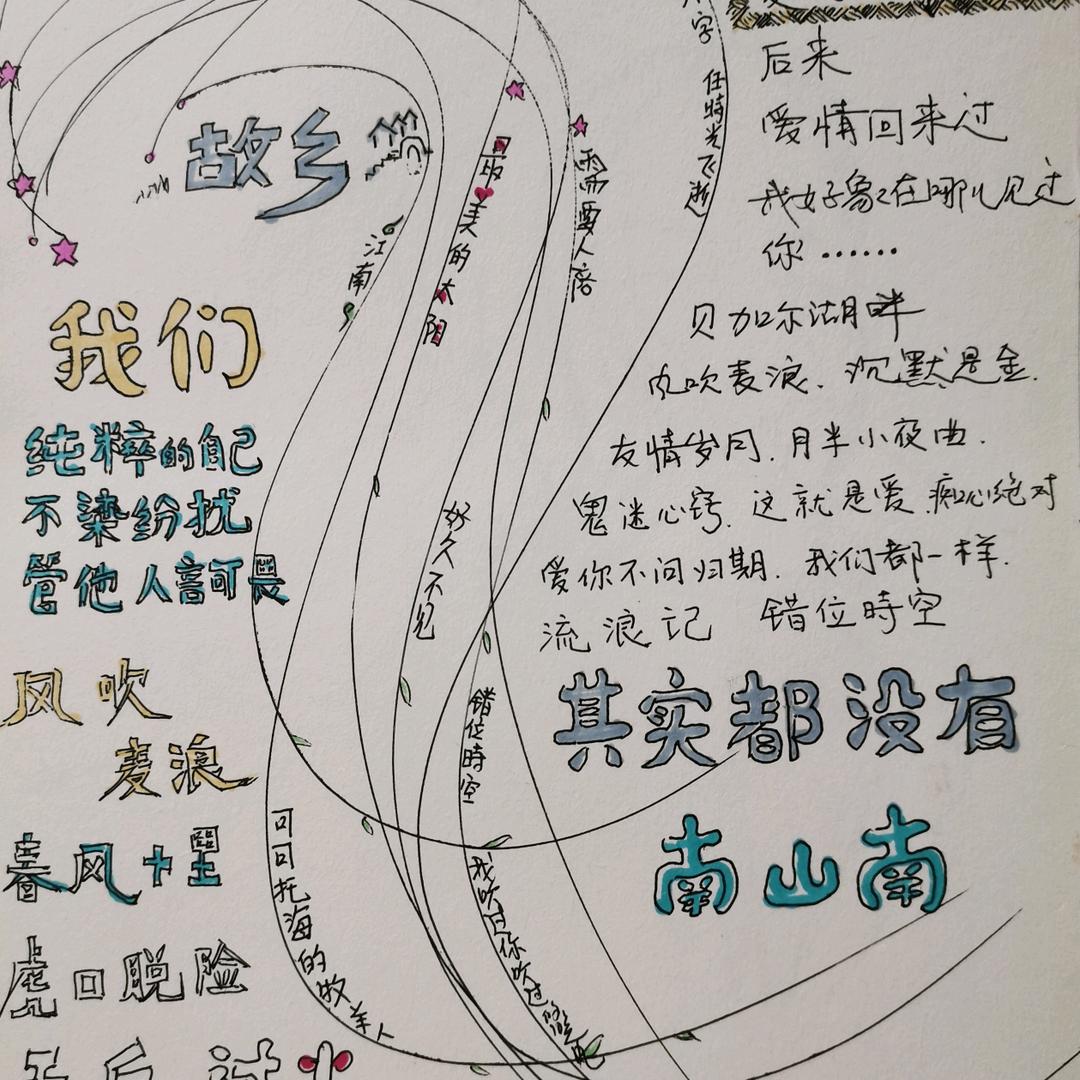 故乡
我们
纯粹的自己
不染纷扰
管他人言可畏
风吹
麦浪
春风十里
虎口脱险
江南
最美的太阳
需要人陪
字 任時光飞逝
好久不见
错位時空
可可托海的牧羊人
我吹过你吹过的晚风
后来
爱情回来过
我好象在哪儿见过
你……
贝加尔湖畔
风吹麦浪．沉默是金．
友情岁月．月半小夜曲．
鬼迷心窍．这就是爱．痴心绝对
爱你不问归期．我们都一样．
流浪记 错位時空
其实都没有
南山南